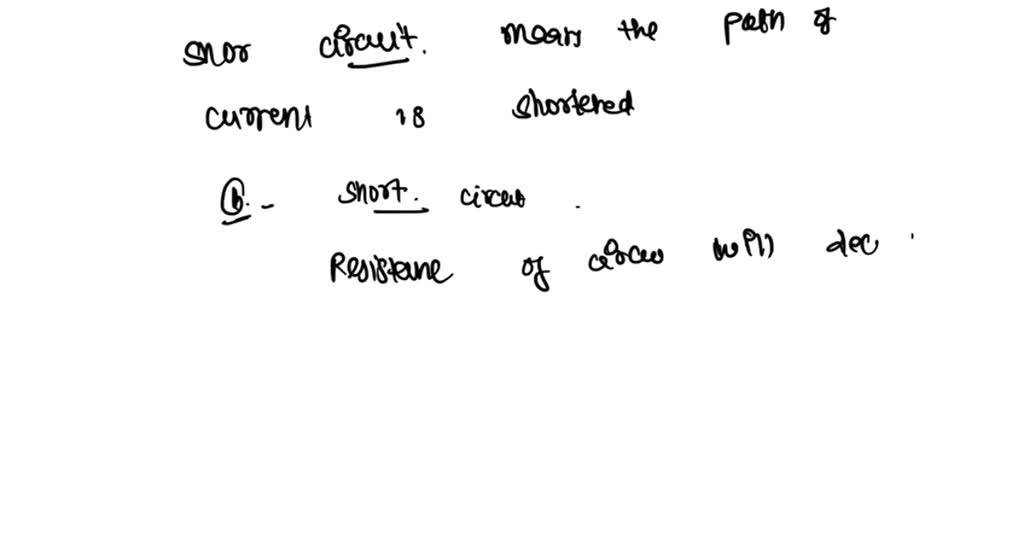 shor circuit. means the path of
current is shortened
(b). - short. circui .
Resistane of circui will dec .